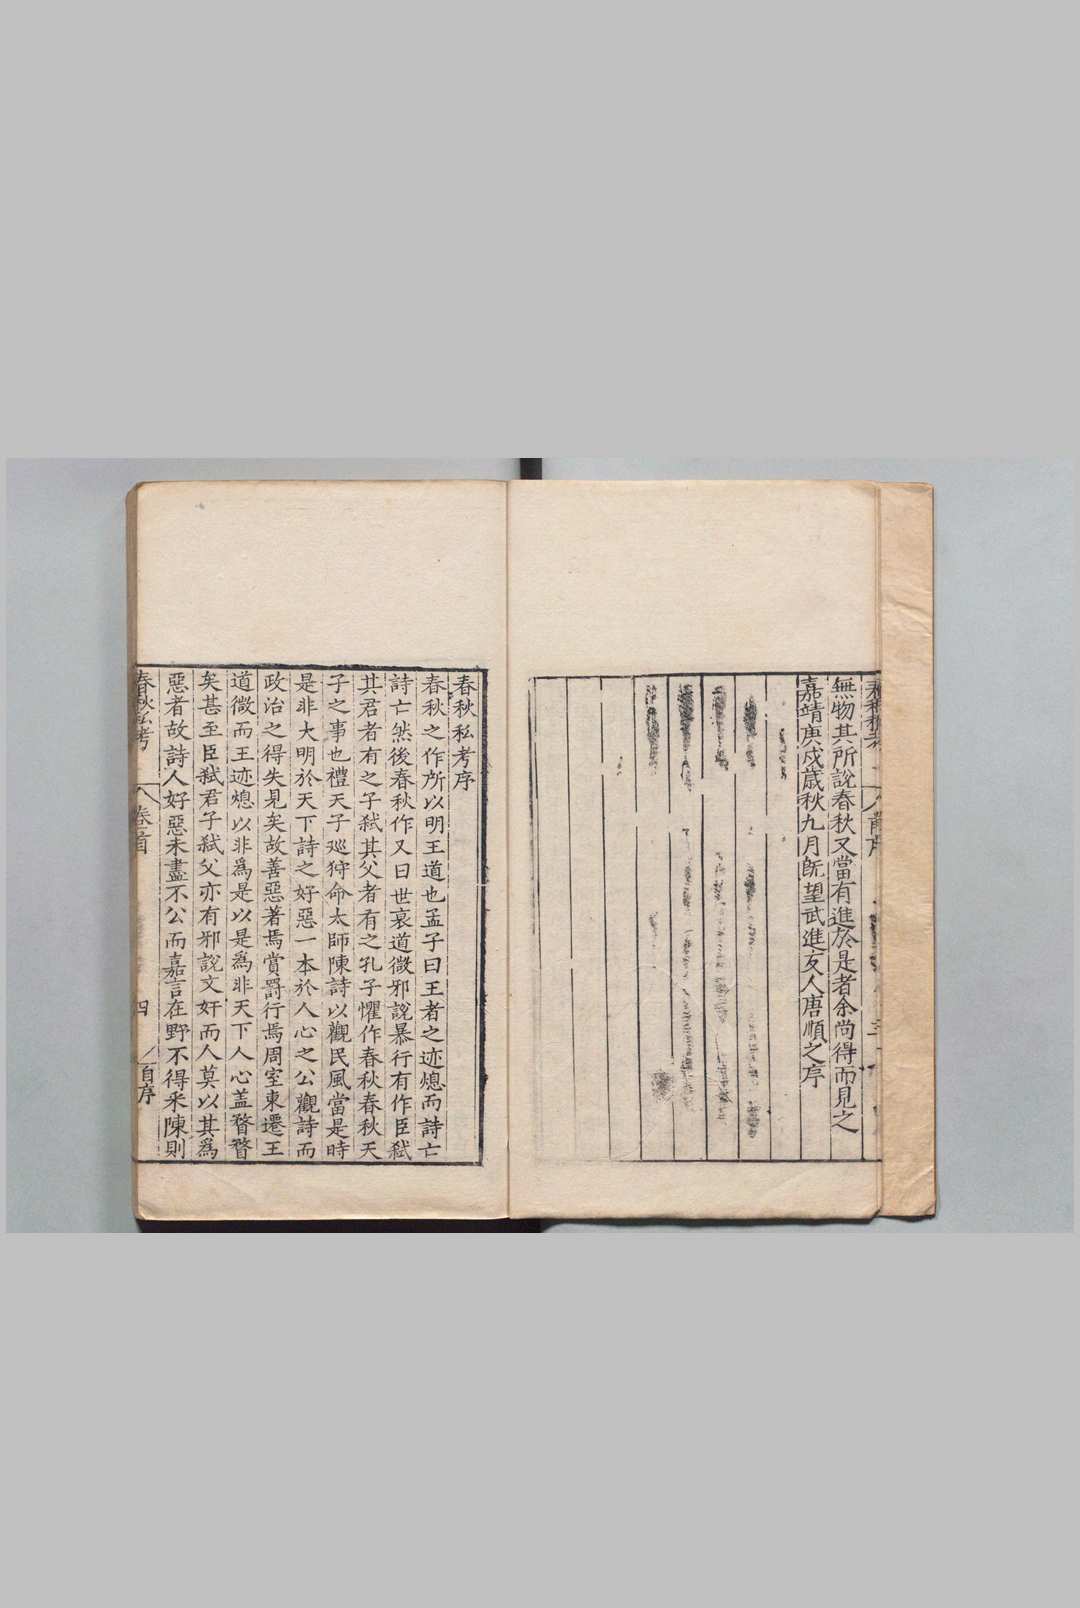 無物其所說春秋又當有進於是者余尚得而見之
嘉靖庚戌歲秋九月旣望武進友人唐順之序
春秋私考序
春秋之作所以明王道也孟子曰王者之迹熄而詩亡
詩亡然後春秋作又曰世衰道微邪說暴行有作臣弑
其君者有之子弑其父者有之孔子懼作春秋春秋天
子之事也禮天子廵狩命太師陳詩以觀民風當是時
是非大明於天下詩之好惡一本於人心之公觀詩而
政治之得失見矣故善惡著焉賞罰行焉周室東遷王
道微而王迹熄以非為是以是為非天下人心盖瞀瞀
矣甚至臣弑君子弑父亦有邪說文奸而人莫以其為
惡者故詩人好惡未盡不公而嘉言在野不得釆陳則
春秋私考 卷首 四 自序